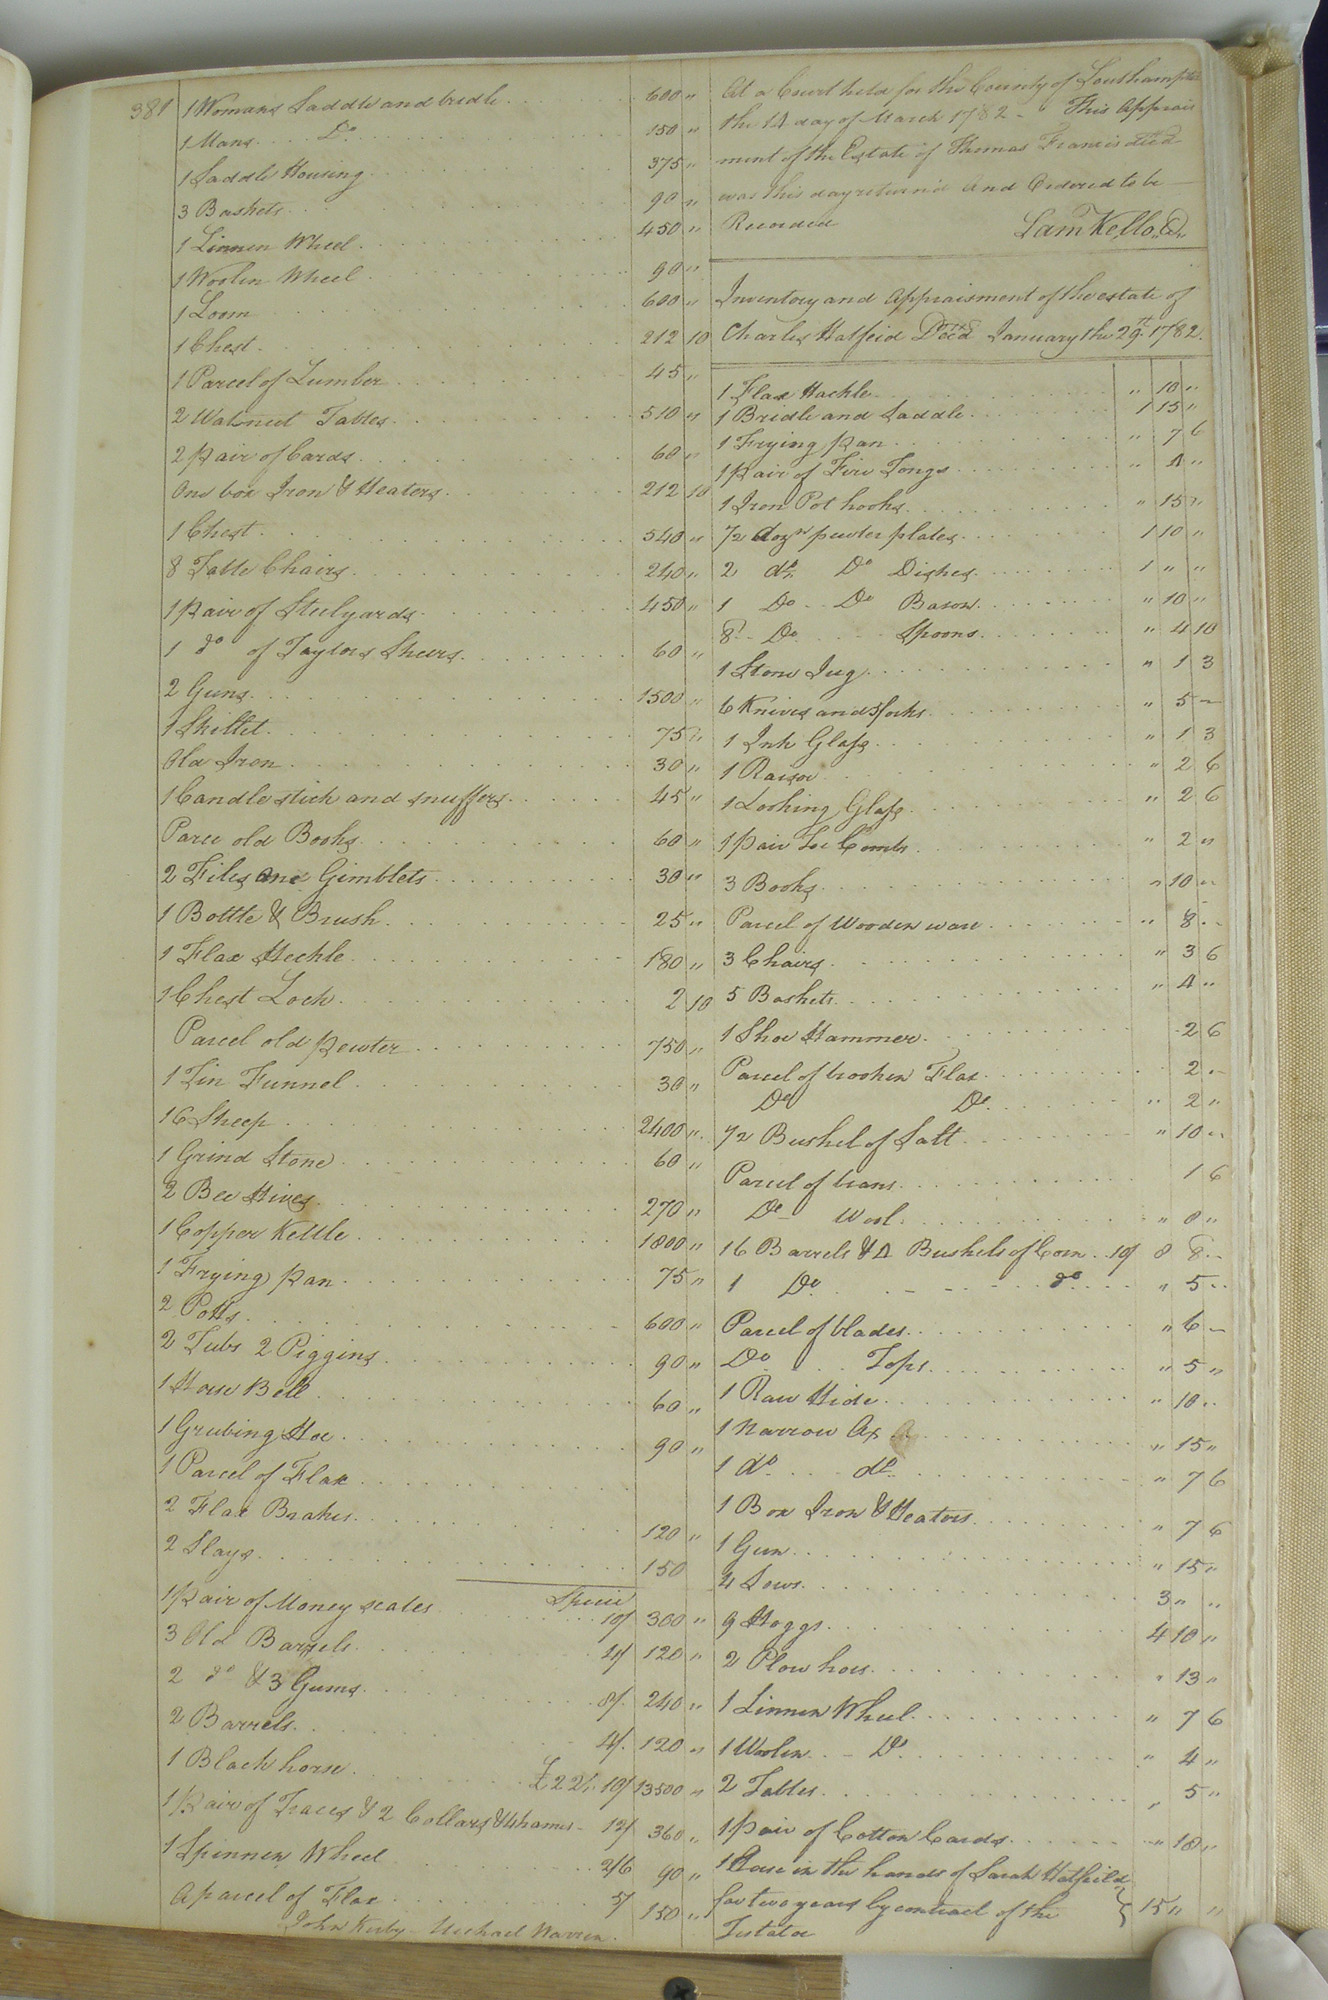 381
1 Womans Saddle and bridle 600 "
1 Mans Do 150 "
1 Saddle Housing 375 "
3 Baskets 90 "
1 Linnen Wheel 450 "
1 Woolin Wheel 90 "
1 Loom 600 "
1 Chest 212 10
1 Parcel of Lumber 45 "
2 Walnut Tables 510 "
2 pair of Cards 60 "
One box Iron & Heaters 212 10
1 Chest 540 "
8 Table Chairs 240 "
1 pair of Steelyards 450 "
1 do of Taylors Sheers 60 "
2 Guns 1500 "
1 Skillet 75 "
Old Iron 30 "
1 Candlestick and snuffers 45 "
Parce old Books 60 "
2 Files one Gimblets 30 "
1 Bottle & Brush 25 "
1 Flax Heckle 180 "
1 Chest Lock 2 10
Parcel old pewter 750 "
1 Tin Funnel 30 "
16 Sheep 2400 "
1 Grind Stone 60 "
2 Bee Hives 270 "
1 Copper Kettle 1800 "
1 Frying pan 75 "
2 Potts 600 "
2 Tubs 2 Piggins 90 "
1 Horse Bell 60 "
1 Grubing Hoe 90 "
1 Parcel of Flax
2 Flax Brakes 120 "
2 Slays 150
Specie
1 pair of Money scales 10/ 300 "
3 Old Barrels 4/ 120 "
2 do & 3 Gums 8/ 240 "
2 Barrels 4/ 120 "
1 Black horse £22.. 10/ 13500 "
1 pair of Traces & 2 Collars & Hames 12/ 360 "
1 Spinnen Wheel 2/6 90 "
A parcel of Flax 5/ 150 "
John Kirby Michael Warren
At a Court held for the County of Southampton
the 14 day of March 1782 - This Apprais
ment of the Estate of Thomas Francis decd
was this day return'd and Ordered to be
Recorded Sam Kello
Inventory and Appraisment of the estate of
Charles Hatfeid Decd January the 29th 1782.
1 Flax Hackle " 10 "
1 Bridle and Saddle 1 15 "
1 Frying pan " 7 6
1 pair of Fire Tongs " 4 "
1 Iron Pot hooks " 15 "
1/2 dozn pewter plates 1 10 "
2 do Do Dishes 1 " "
1 Do Do Bason " 10 "
8 Do Spoons " 4 10
1 Stone Jug " 1 3
6 Knives and forks " 5 -
1 Ink Glass " 1 3
1 Raisor " 2 6
1 Looking Glass " 2 6
1 pair Combs " 2 "
3 Books " 10 "
Parcel of Wooden ware " 8 "
3 Chairs " 3 6
5 Baskets " 4 "
1 Shoe Hammer 2 6
Parcel of brooken Flax 2 "
Do Do " 2 "
1/2 Bushel of Salt " 10 "
Parcel of beans 1 6
Do Wool " 8 "
16 Barrels & 4 Bushels of Corn 10/ 8 8 -
1 Do do " 5 "
Parcel of blades " 6 -
Do Tops " 5 "
1 Raw Hide " 10 "
1 Narrow Ax " 15 "
1 do do " 7 6
1 Box Iron & Heators " 7 6
1 Gun " 15 "
4 Sows 3 " "
9 Hoggs 4 10 "
2 Plow hoes " 13 "
1 Linnen Wheel " 7 6
1 Woolen Do " 4 "
2 Tables " 5 "
1 pair of Cotton Cards " 18 "
1 in the hands of Sarah Hatfeild
for two years by contract of the } 15 " "
Testator